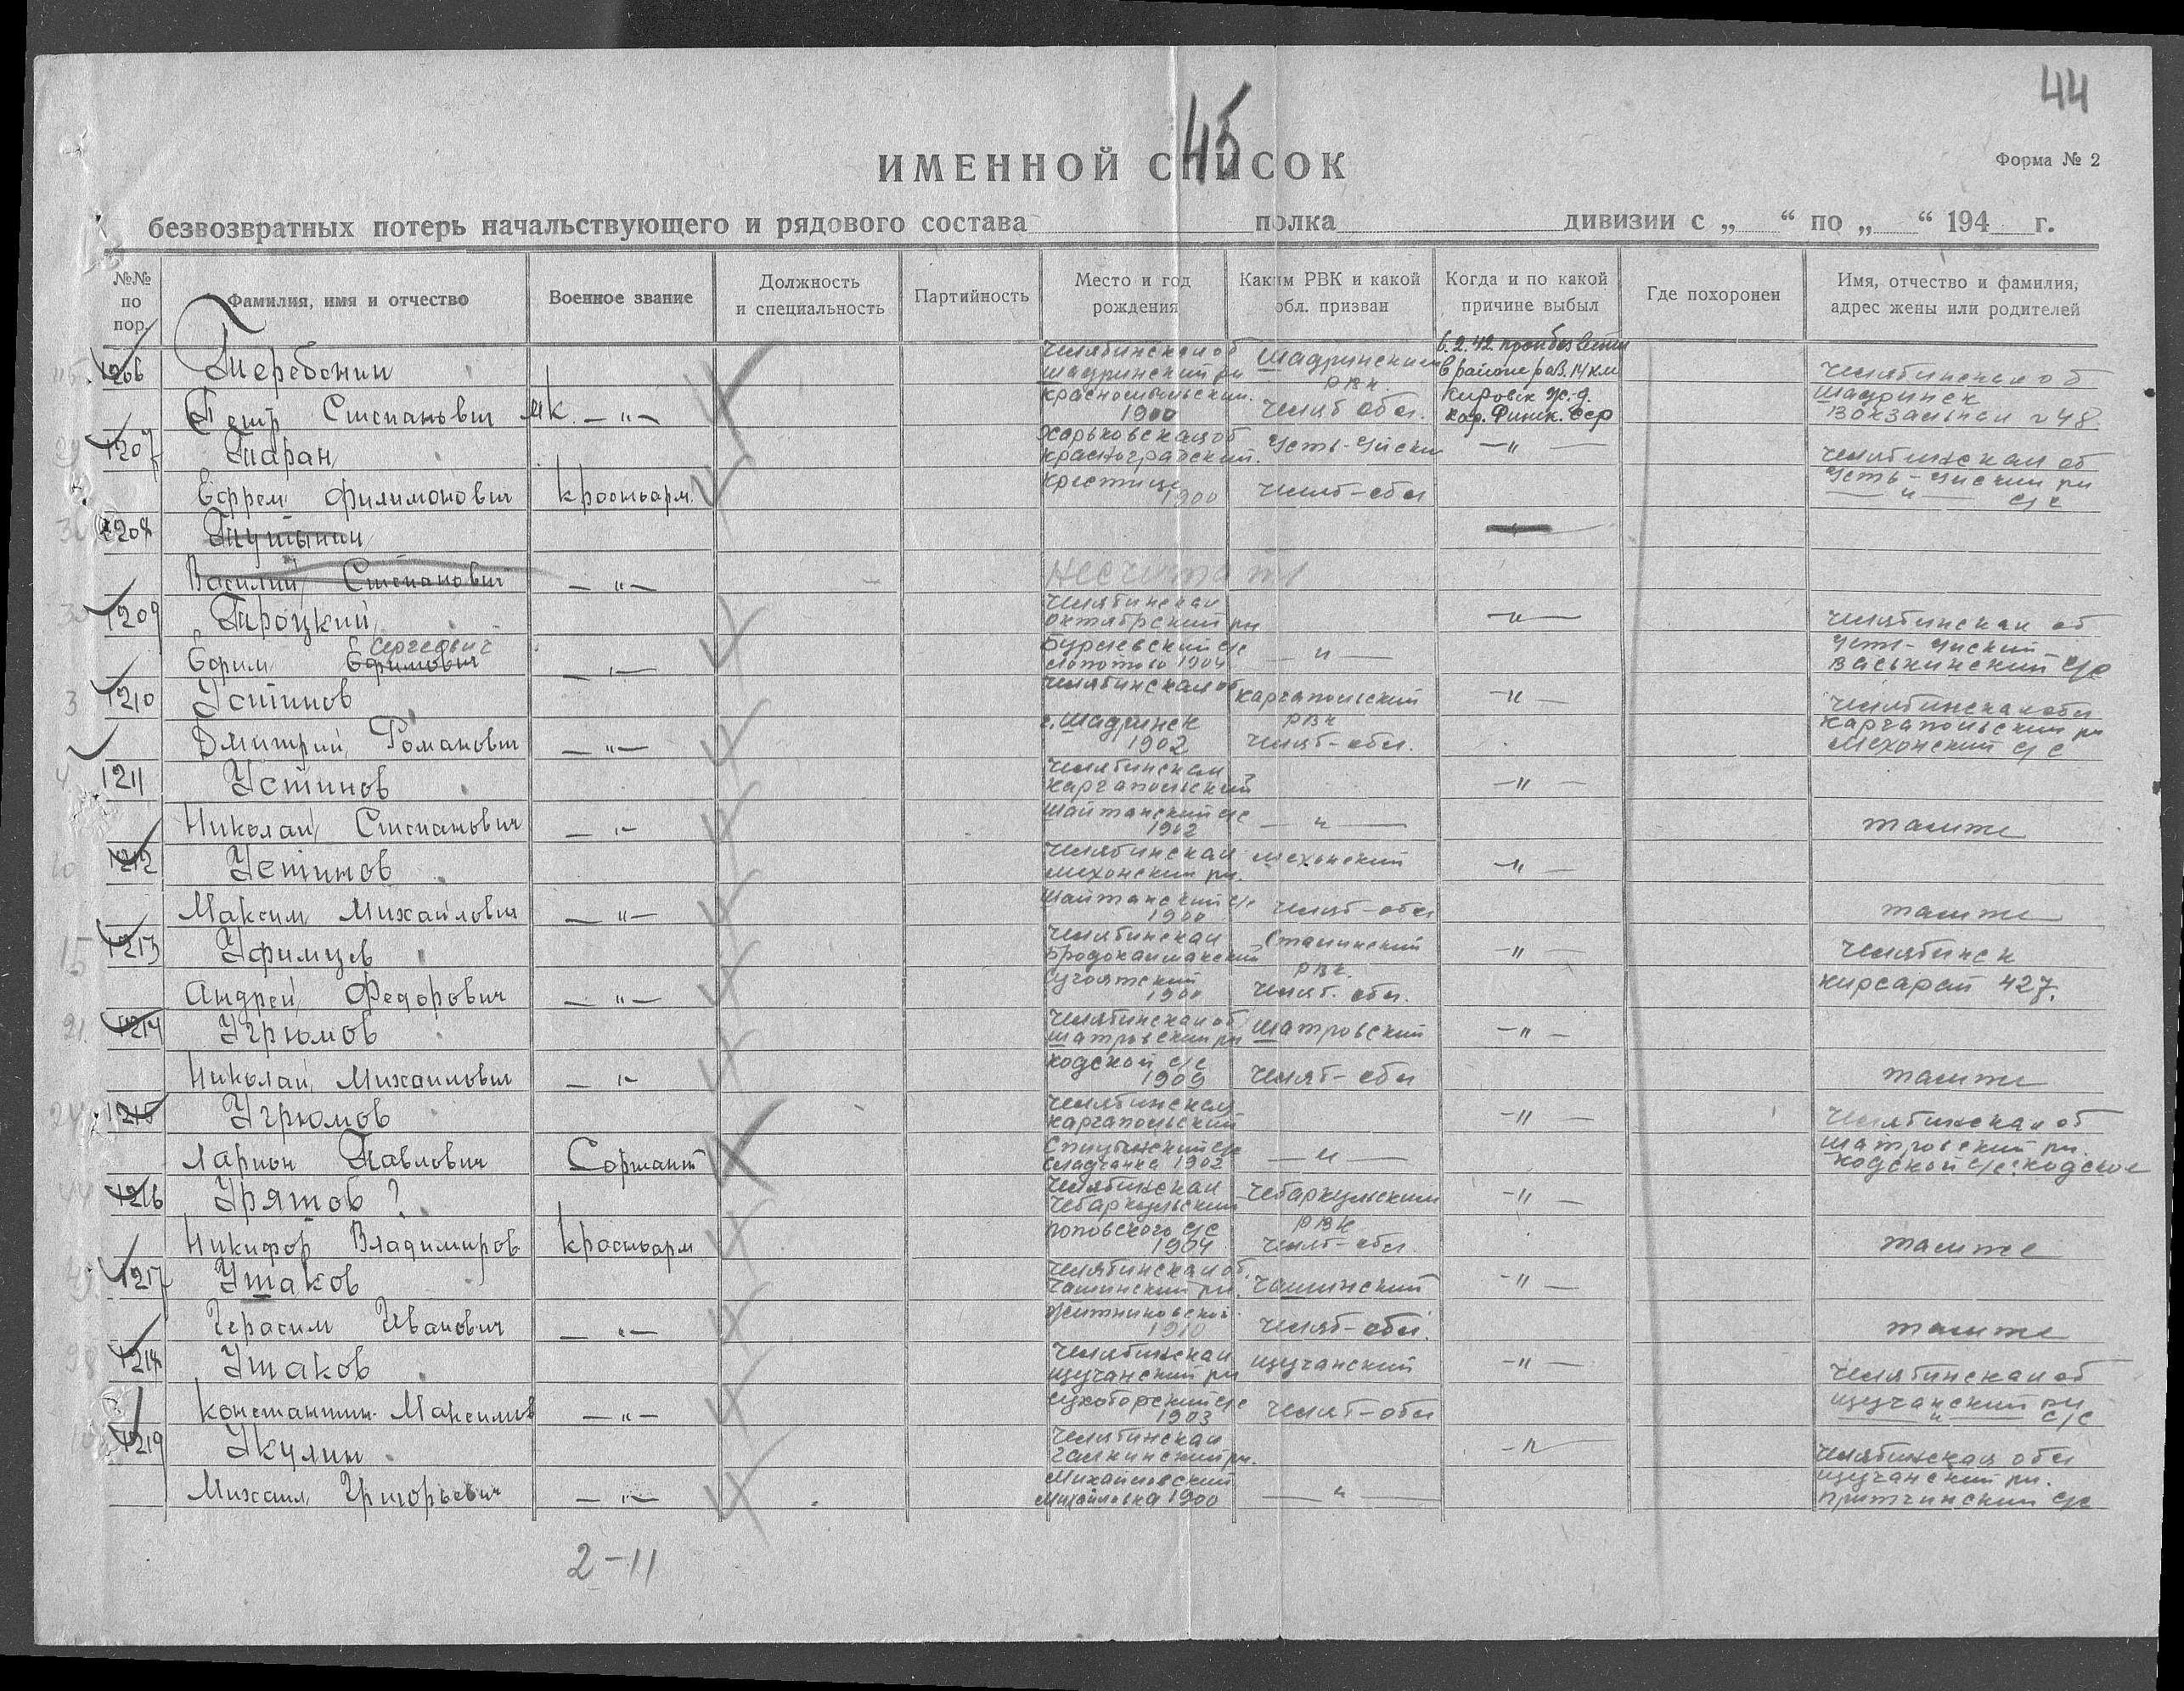 44
45
ИМЕННОЙ СПИСОК
Форма № 2
безвозвратных потерь начальствующего и рядового состава полка дивизии с „ “ по „ “ 194 г.
№№ по пор. Фамилия, имя и отчество Военное звание Должность и специальность Партийность Место и год рождения Каким РВК и какой обл. призван Когда и по какой причине выбыл Где похоронен Имя, отчество и фамилия, адрес жены или родителей
1206 Теребенин Челябинская об Шадринский рн Шадринским РВК 6.2.42 проп без вести в районе раз. 14 км Челябинская об
Петр Степанович мк. —"— 1900 Челяб обл. Кировск ж.д. Кар. Финк. ССР Шадринск Вокзальная 48.
1207 Таран Харьковская об Красноградский Усть-Уйский —"— Челябинская об
Ефрем Филимонович Красноарм. 1900 Челяб-обл Усть-Уйский рн —"— с/с
1208 Тушынин
Василий Степанович —"—
1209 Троцкий Челябинская Октябрский рн —"— Челябинская об
Ефим Сергеевич Ефимович —"— с/с 1904 —"— Усть-Уйский с/с
1210 Устинов Челябинская об Каргапольский —"— Челябинская обл
Дмитрий Романович —"— г. Шадринск 1902 РВК Челяб-обл. Каргапольский рн Мехонский с/с
1211 Устинов Челябинская Каргапольский —"—
Николай Степанович —"— Шайтанский с/с 1902 —"— там же
1212 Устинов Челябинская Мехонский рн. Мехонский —"—
Максим Михайлович —"— Шайтанский с/с 1900 Челяб-обл там же
1213 Уфимцев Челябинская Бродокалмакский Сталинский РВК —"— Челябинск
Андрей Федорович —"— Сугоякский 1900 Челяб. обл. Кирсарай 427.
1214 Угрюмов Челябинская об Шатровский рн Шатровский —"—
Николай Михайлович —"— Кодской с/с 1909 Челяб-обл там же
1215 Угрюмов Челябинская Каргапольский —"— Челябинская об
Ларион Павлович Сержант с/с 1902 —"— Шатровский рн. Кодской с/с
1216 Урятов? Челябинская Чебаркульский Чебаркульским —"—
Никифор Владимиров Красноарм Поповского с/с 1904 РВК Челяб-обл. там же
1217 Ушаков Челябинская об. Чашинский рн. Чашинский —"—
Герасим Иванович —"— Житниковский 1910 Челяб-обл. там же
1218 Ушаков Челябинская Щучанский рн Щучанский —"— Челябинская об
Константин Максимов —"— с/с 1903 Челяб-обл Щучанский рн —"— с/с
1219 Укулин Челябинская Галкинский рн. —"— Челябинская обл
Михаил Григорьевич —"— Михайловский Михайловка 1900 —"— Щучанский рн. с/с
2-11